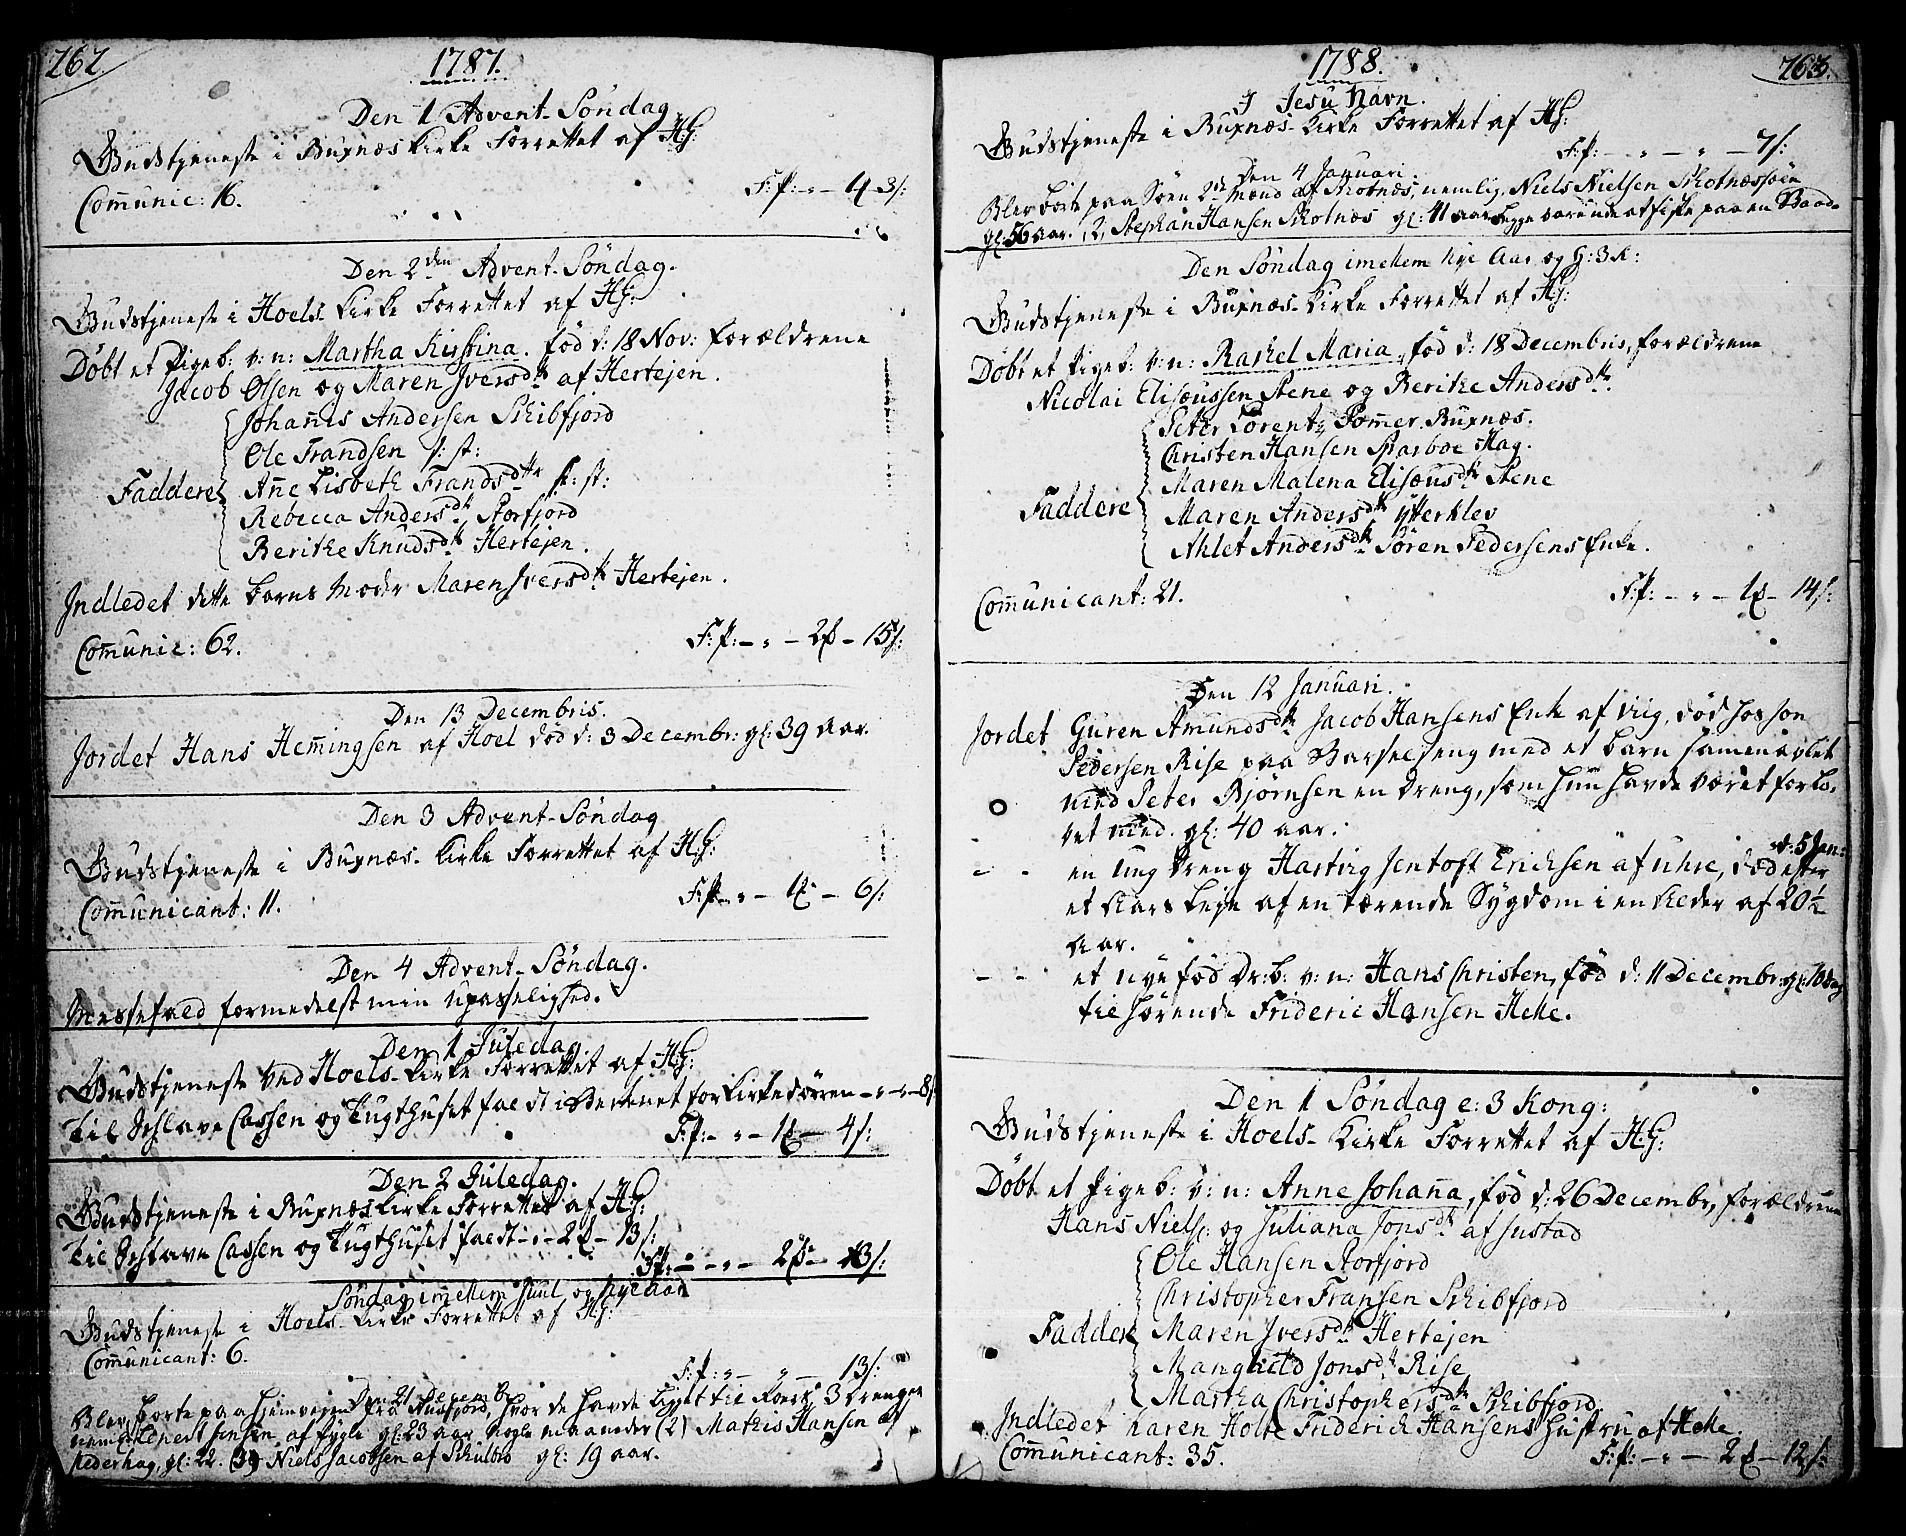 262.
1787.
Den 1 Advent-Söndag
Gudstjeneste i Buxnæs Kirke Forrettet af HG:
Com̅unic: 16.
F: P: - " - 4 3 ſ:
Den 2den Advent-Söndag.
Gudstjeneste i Hoels-Kirke Forrettet af HG:
Döbt et Pigeb: v: n: Martha Kirstina. föd d: 18 Nov: Forældrene
Jacob Olsen og Maren Iversdtr af Hertejen.
Johan̅es Andersen Schibfjord
Ole Frandsen s: st:
Faddere An̅e Lisbeth Frandsdttr s: st:
Rebecca Andersdtr Storfjord
Berithe Knudsdtr Hertejen.
Indledet dette Barns Moder Maren Iversdtr Hertejen.
Com̅unic: 62.
F: P: - " - 2 - 15 ſ:
Den 13 Decembris.
Jordet Hans Hem̅ingsen af Hoel död d: 3 Decembr: gl: 39 Aar.
Den 3 Advent-Söndag
Gudstjeneste i Buxnæs-Kirke Forrettet af HG:
Com̅unicant: 11.
F: P: - " - 1 - 6 ſ:
Den 4 Advent-Söndag.
Messefald formedelst min Upasselighed.
Den 1 Juledag
Gudstjeneste ved Hoels-Kirke Forrettet af HG:
Til Schlave Cassen og Tugthuset faldt i Bekkenet for Kirkedörren - " - 8 ſ
F: P: - " - 1 - 4 ſ:
Den 2 Juledag.
Gudstjeneste i Buxnæs Kirke Forrettet af HG:
Til Schlave Cassen og Tugthuset faldt - " - 2 - 13 ſ:
F: P: - " - 2 - 13 ſ:
Söndag imellem Juul og Nye Aar
Gudstjeneste i Hoels-Kirke Forrettet af HG:
Com̅unicant: 6.
F: P: " - " - 13 ſ:
Den 21 Decembr
Blev borte paa hjemvejen fra Nusfjord, hvor de havde ligget til Roers 3 Drenge
nemlig Lenert Jensen af Fygle gl: 23 aar nogle maaneder (2) Mathis Hansen af
Pederhag, gl: 22. (3) Niels Jacobsen af Schulbro gl: 19 aar.
1788.
263.
I Jesu Navn.
Gudstjeneste i Buxnæs-Kirke Forrettet af HG:
F: P: - " - " - 7 ſ:
Den 4 Januari.
Blev borte paa Söen 2de Mænd af Skotnæs, nemlig, Niels Nielsen Skotnæssöen
gl: 56 aar. 2, Stephan Hansen Skotnæs gl: 41 aar begge vare ude at fiske paa en Baad.
Den Söndag imellem Nye Aar og H: 3 K:
Gudstjeneste i Buxnæs-Kirke Forrettet af HG:
Döbt et Pigeb: v: n: Rachel Maria, föd d: 18 Decembris, Forældrene
Nicolai Elisæussen Stene og Berithe Andersdtr.
Peter Lorentz Pom̅er, Buxnæs.
Christen Hansen Parboe Hag.
Faddere Maren Malena Elisæusdtr Stene
Maren Andersdtr Ytterklev
Ahlet Andersdtr Sören Pedersens Enke.
Com̅unicant: 21.
F: P: - " - 1 - 14 ſ:
Den 12 Januari.
Jordet Guren Amundsdtr Jacob Hansens Enke af Viig, död hos Jon
Pedersen Rise paa Barselseng med et barn sammenavlet
med Peter Bjørnsen en Dreng, som hun havde været forlo-
vet med. gl: 40 aar.
- - en ung Dreng Hartvig Jentoft Erichsen af Uhre, död d: 5 Jan: efter
et Aars Leje af en tærende Sygdom i en Alder af 20½
Aar.
- - et nye föd Dr: b: v: n: Hans Christen, föd d: 11 Decembr: gl: 10 dag
tilhörende Frideric Hansen Helle.
Den 1 Söndag e: 3 Kong:
Gudstjeneste i Hoels-Kirke Forrettet af HG:
Döbt et Pigeb: v: n: Anne Johan̅a, föd d: 26 Decembr, Forældrene
Hans Niels: og Juliana Jonsdtr af Justad
Ole Hansen Storfjord
Christopher Fransen Schibfjord
Faddere Maren Iversdtr Hertejen
Manghild Jonsdtr Rise
Martha Christophersdtr Schibfjord
Indledet Karen Holte Friderich Hansens Hustru af Helle.
Com̅unicant: 35.
F: P: - " - 2 - 12 ſ: